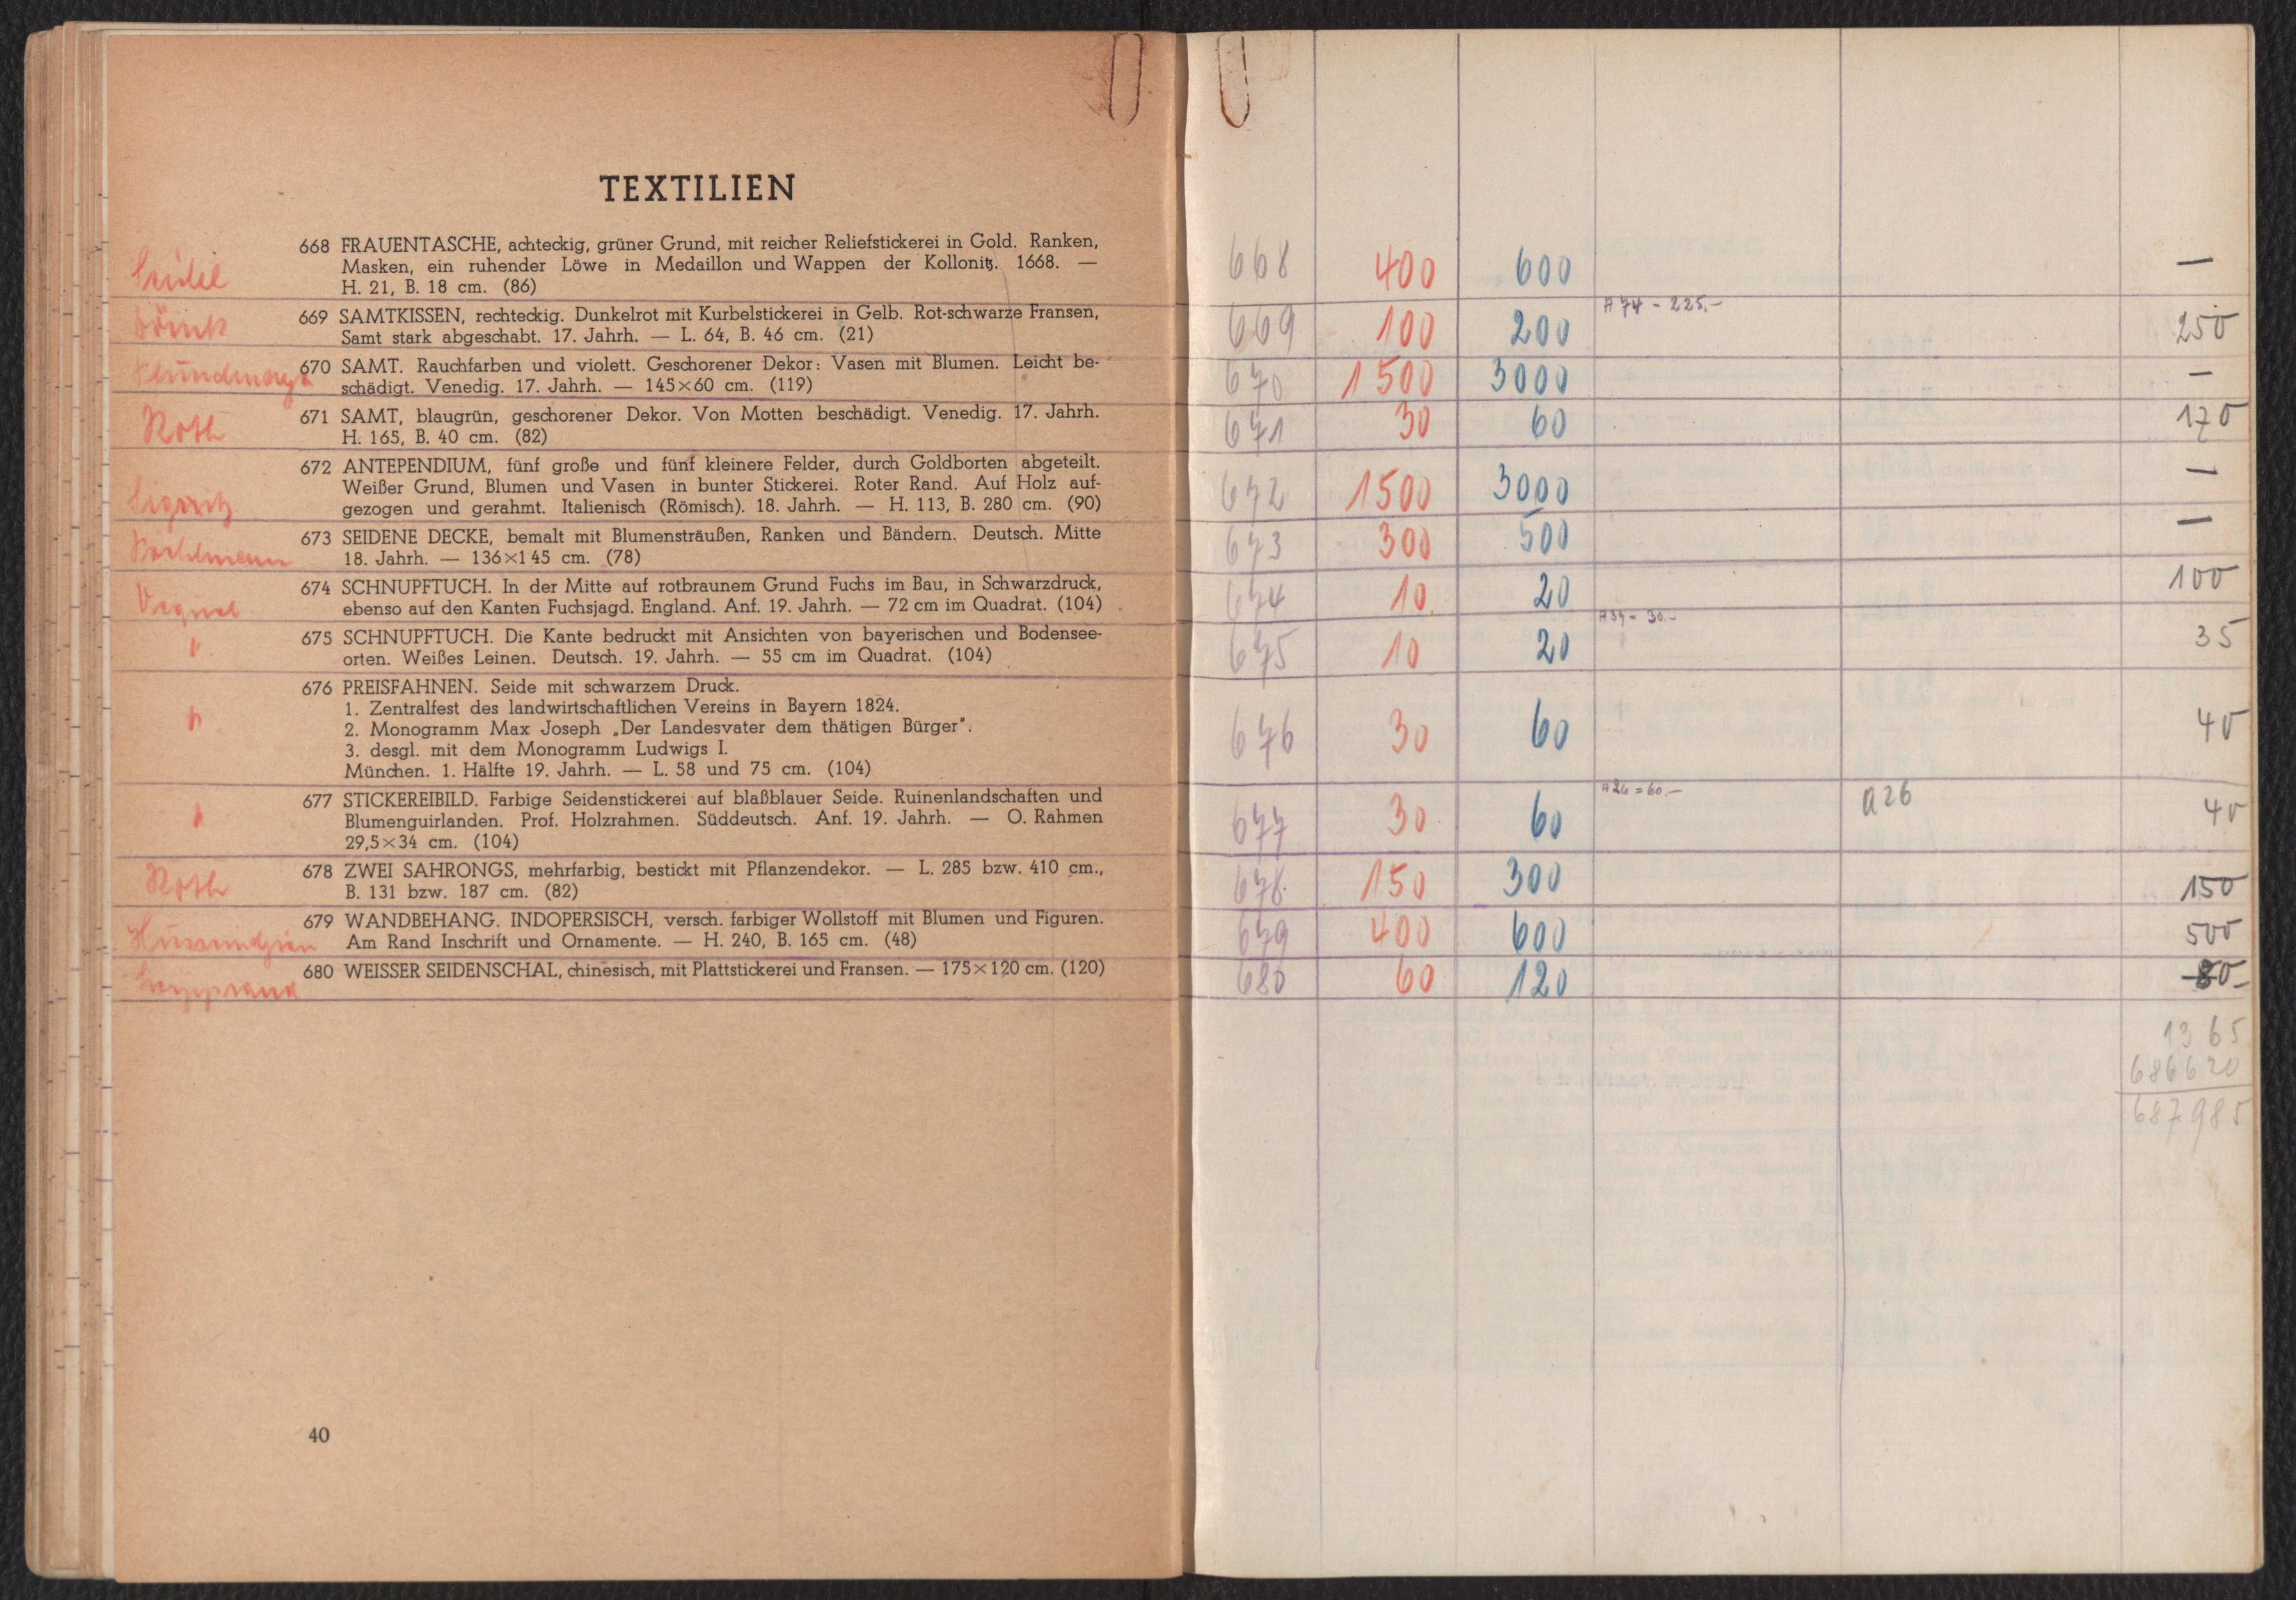 TEXTILIEN
668 FRAUENTASCHE, achteckig, grüner Grund, mit reicher Reliefstickerei in Gold. Ranken,
Masken, ein ruhender Löwe in Medaillon und Wappen der Kollonitz. 1668. —
H. 21, B. 18 cm. (86)
669 SAMTKISSEN, rechteckig. Dunkelrot mit Kurbelstickerei in Gelb. Rot-schwarze Fransen,
Samt stark abgeschabt. 17. Jahrh. — L. 64, B. 46 cm. (21)
670 SAMT. Rauchfarben und violett. Geschorener Dekor: Vasen mit Blumen. Leicht be-
schädigt. Venedig. 17. Jahrh. — 145×60 cm. (119)
Roth
671 SAMT, blaugrün, geschorener Dekor. Von Motten beschädigt. Venedig. 17. Jahrh.
H. 165, B. 40 cm. (82)
672 ANTEPENDIUM, fünf große und fünf kleinere Felder, durch Goldborten abgeteilt.
Weißer Grund, Blumen und Vasen in bunter Stickerei. Roter Rand. Auf Holz auf-
gezogen und gerahmt. Italienisch (Römisch). 18. Jahrh. — H. 113, B. 280 cm. (90)
673 SEIDENE DECKE, bemalt mit Blumensträußen, Ranken und Bändern. Deutsch. Mitte
18. Jahrh. — 136×145 cm. (78)
674 SCHNUPFTUCH. In der Mitte auf rotbraunem Grund Fuchs im Bau, in Schwarzdruck,
ebenso auf den Kanten Fuchsjagd. England. Anf. 19. Jahrh. — 72 cm im Quadrat. (104)
675 SCHNUPFTUCH. Die Kante bedruckt mit Ansichten von bayerischen und Bodensee-
orten. Weißes Leinen. Deutsch. 19. Jahrh. — 55 cm im Quadrat. (104)
676 PREISFAHNEN. Seide mit schwarzem Druck.
1. Zentralfest des landwirtschaftlichen Vereins in Bayern 1824.
2. Monogramm Max Joseph „Der Landesvater dem thätigen Bürger".
3. desgl. mit dem Monogramm Ludwigs I.
München. 1. Hälfte 19. Jahrh. — L. 58 und 75 cm. (104)
677 STICKEREIBILD. Farbige Seidenstickerei auf blaßblauer Seide. Ruinenlandschaften und
Blumenguirlanden. Prof. Holzrahmen. Süddeutsch. Anf. 19. Jahrh. — O. Rahmen
29,5×34 cm. (104)
Roth
678 ZWEI SAHRONGS, mehrfarbig, bestickt mit Pflanzendekor. — L. 285 bzw. 410 cm.,
B. 131 bzw. 187 cm. (82)
679 WANDBEHANG. INDOPERSISCH, versch. farbiger Wollstoff mit Blumen und Figuren.
Am Rand Inschrift und Ornamente. — H. 240, B. 165 cm. (48)
680 WEISSER SEIDENSCHAL, chinesisch, mit Plattstickerei und Fransen. — 175×120 cm. (120)
40
668 400 600 —
669 100 200 A 74 - 225.- 250
670 1500 3000 —
671 30 60 170
672 1500 3000 —
673 300 500 —
674 10 20 100
675 10 20 A 39 - 30.- 35
676 30 60 40
677 30 60 A 26 = 60.- a 26 40
678 150 300 150
679 400 600 500
680 60 120 80
1365
686620
687985